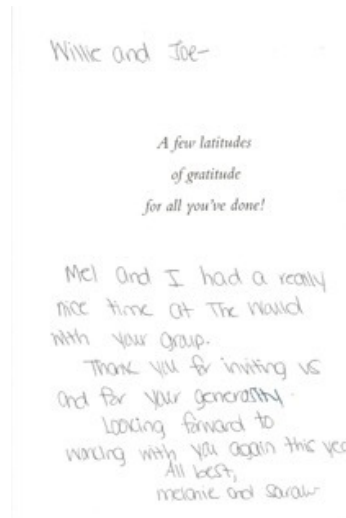 Willie and Joe-
A few latitudes
of gratitude
for all you've done!
Mel and I had a really
nice time at The World
with your group.
Thank you for inviting us
and for your generosity.
Looking forward to
working with you again this yea
All best,
melanie and Sarah